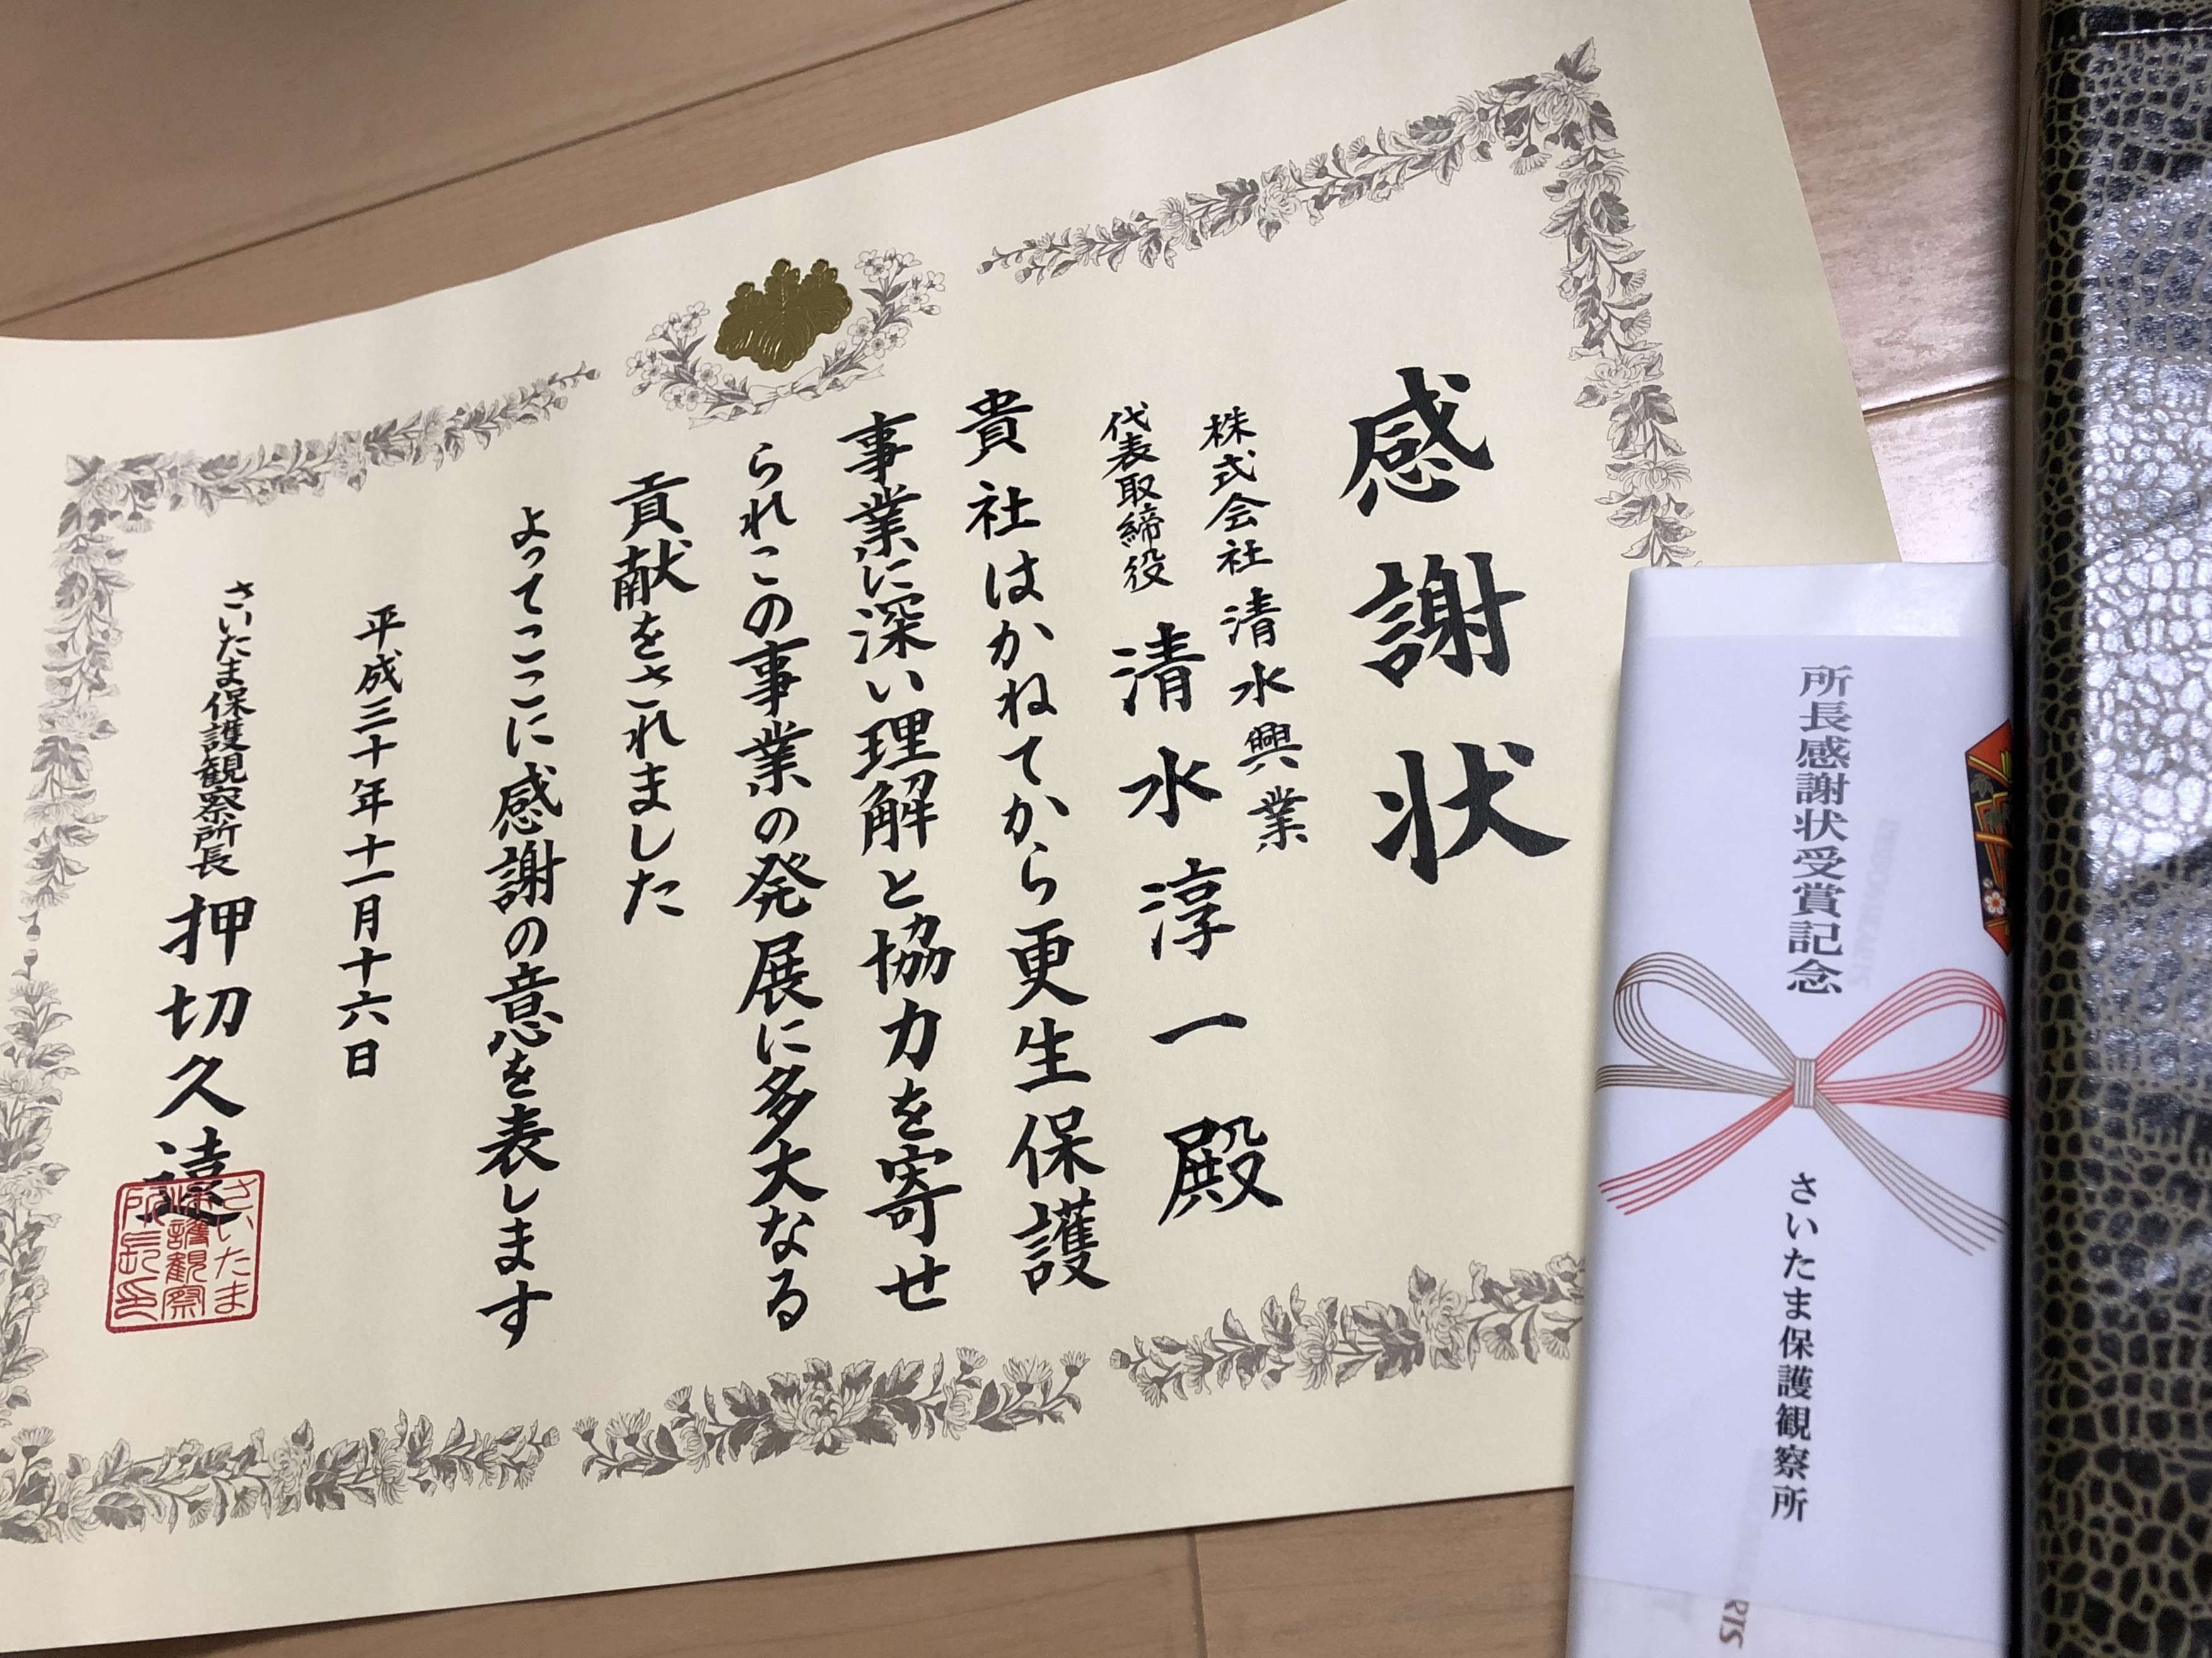 感謝状
株式会社清水興業
代表取締役 清水淳一殿
貴社はかねてから更生保護
事業に深い理解と協力を寄せ
られこの事業の発展に多大なる
貢献をされました
よってここに感謝の意を表します
平成三十年十一月十六日
さいたま保護観察所長 押切久遠
さいたま
保護観察
所長印
所長感謝状受賞記念
さいたま保護観察所